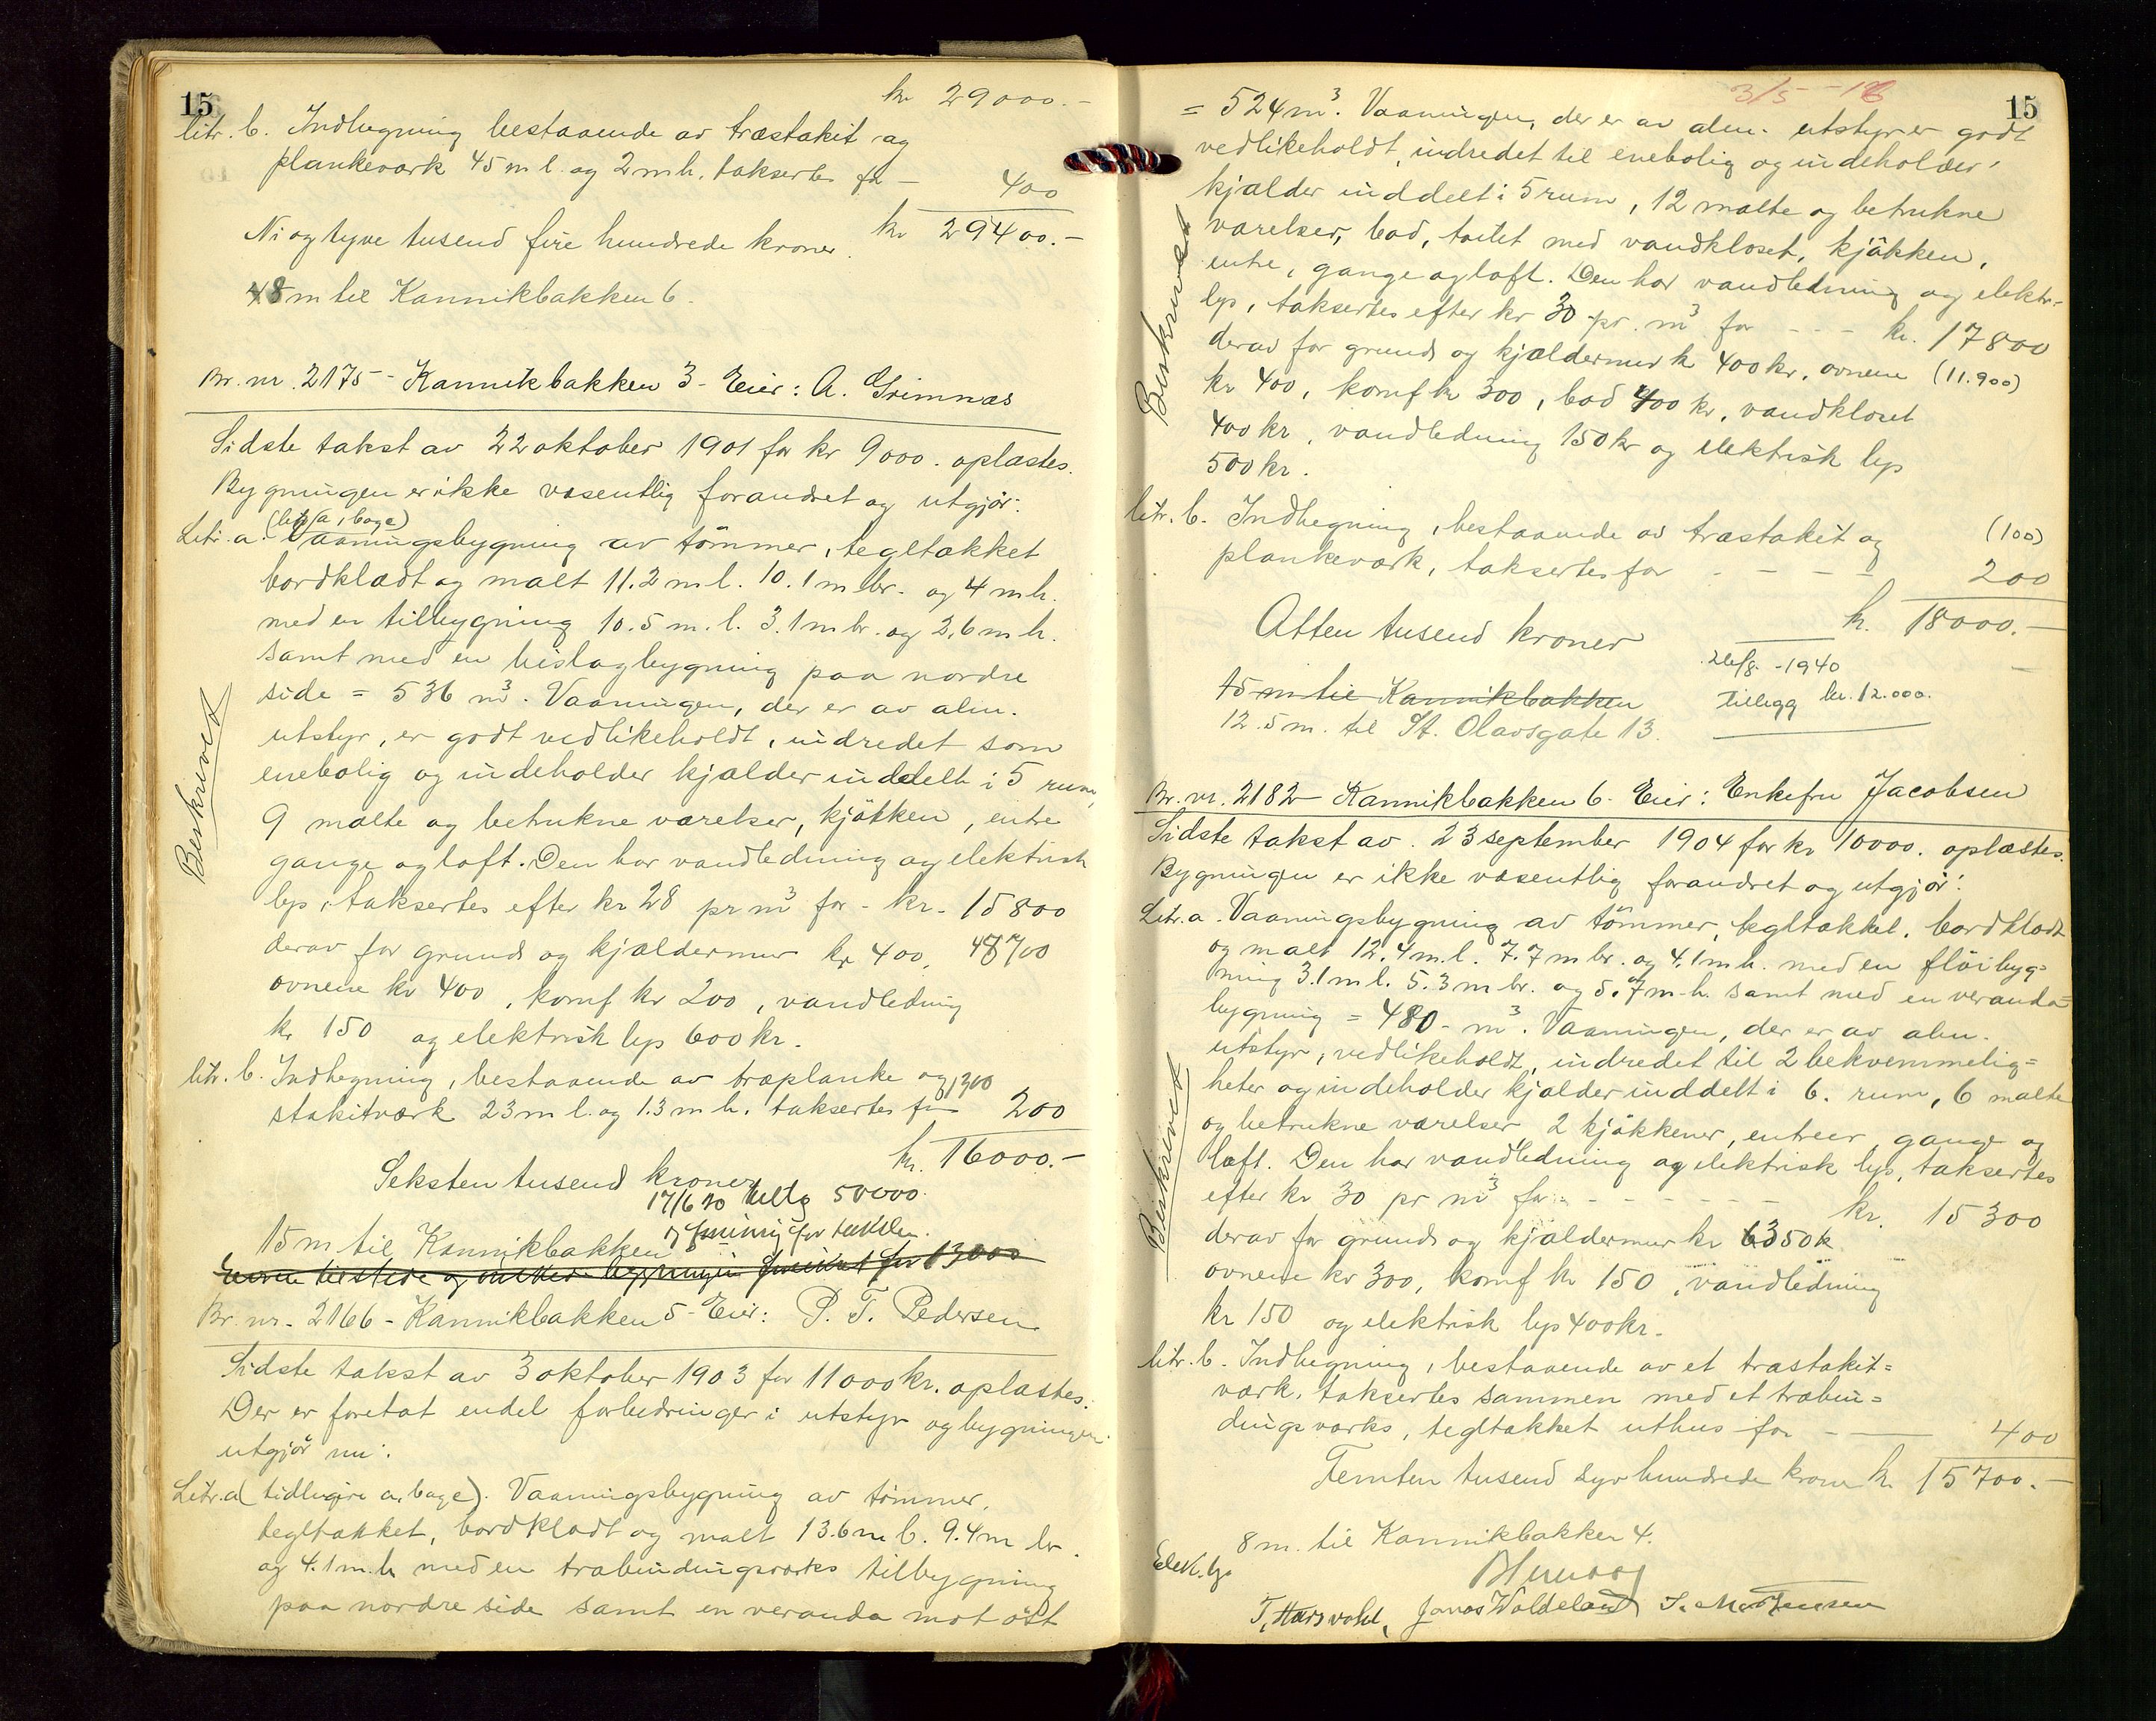 15
kr 29000.-
litr. b. Indhegning bestaaende av træstakit og
plankeværk 45 m l. og 2 m h. taksertes for - 400
Ni og tyve tusend fire hundrede kroner. kr 29400.-
8 m til Kannikbakken 6.
Br. nr. 2175 - Kannikbakken 3 - Eier: A. Grimnæs
Sidste takst av 22 oktober 1901 for kr 9000. oplæstes.
Bygningen er ikke væsentlig forandret og utgjør:
(litr a, b og c)
Litr. a. Vaaningsbygning av tömmer, tegltækket
bordklædt og malt 11.2 m l. 10.1 m br. og 4 m h.
med en tilbygning 10.5 m. l. 3.1 m br. og 2,6 m h.
samt med en bislagbygning paa nordre
side = 536 m³. Vaaningen, der er av alm.
utstyr, er godt vedlikeholdt, indredet som
enebolig og indeholder kjælder inddelt i 5 rum,
9 malte og betrukne værelser, kjökken, entre
gange og loft. Den har vandledning og elektrisk
lys, taksertes efter kr 28 pr m³ for - kr. 15800
derav for grund og kjældermur kr 400, 48700
ovnene kr 400, komf kr 200, vandledning
kr 150 og elektrisk lys 600 kr.
Beskrevet
litr. b. Indhegning, bestaaende av træplanke og 1300
stakitværk 23 m l. og 1.3 m h. taksertes for 200
kr. 16000.-
Seksten tusend kroner
17/6 20 50000.
15 m til Kannikbakken
for taksten.
for 13000
Br. nr. 2166 - Kannikbakken 5 - Eier: P. T. Pedersen
Sidste takst av 3 oktober 1903 for 11000 kr. oplæstes.
Der er foretat endel forbedringer i utstyr og bygningen
utgjör nu:
Litr. a (tidligere a, b og c). Vaaningsbygning av tömmer,
tegltækket, bordklædt og malt 13.6 m l. 9.4 m br.
og 4.1 m. h med en træbindingsværks tilbygning
paa nordre side samt en veranda mot öst
3/5 - 16
15
= 524 m³. Vaaningen, der er av alm. utstyr er godt
vedlikeholdt, indredet til enebolig og indeholder:
kjælder inddelt i 5 rum, 12 malte og betrukne
værelser, bad, toilet med vandkloset, kjökken,
entre, gange og loft. Den har vandledning og elektr.
lys, taksertes efter kr 30 pr. m³ for - - - kr. 17800
derav for grund og kjældermur kr 400 kr, ovnene (11.900)
kr 400, komf kr 300, bad 400 kr, vandkloset
400 kr, vandledning 150 kr og elektrisk lys
500 kr.
Beskrevet
litr. b. Indhegning, bestaaende av træstakit og (100)
plankeværk, taksertes for - - - - 200
Atten tusend kroner kr. 18000.-
26/8 -1940
15 m til Kannikbakken Tillegg kr. 12.000.
12.5 m. til St. Olavsgate 13.
Br. nr. 2182 - Kannikbakken 6 - Eier: Enkefru Jacobsen
Sidste takst av 23 september 1904 for kr 10000. oplæstes.
Bygningen er ikke væsentlig forandret og utgjör:
Litr. a. Vaaningsbygning av tömmer, tegltækket, bordklædt
og malt 12.4 m. l. 7.7 m br. og 4.1 m h. med en flöibyg=
ning 3.1 m l. 5.3 m br. og 5.7 m. h. samt med en veranda=
bygning = 480 - m³. Vaaningen, der er av alm.
utstyr, vedlikeholdt, indredet til 2 bekvemmelig=
heter og indeholder kjælder inddelt i 6. rum, 6 malte
og betrukne værelser 2 kjökkener, entreer, gange og
loft. Den har vandledning og elektrisk lys, taksertes
efter kr 30 pr m³ for - - - - - - kr. 15300
derav for grund og kjældermur kr 350 k
ovnene kr 300, komf kr 150, vandledning
kr 150 og elektrisk lys 400 kr.
Beskrevet
litr. b. Indhegning, bestaaende av et træstakit=
værk, taksertes sammen med et træbin=
dingsværks, tegltækket uthus for - 400
Femten tusend syv hundrede kroner kr. 15700.-
8 m. til Kannikbakken 4.
Elek. lys
Jonas Woldeland